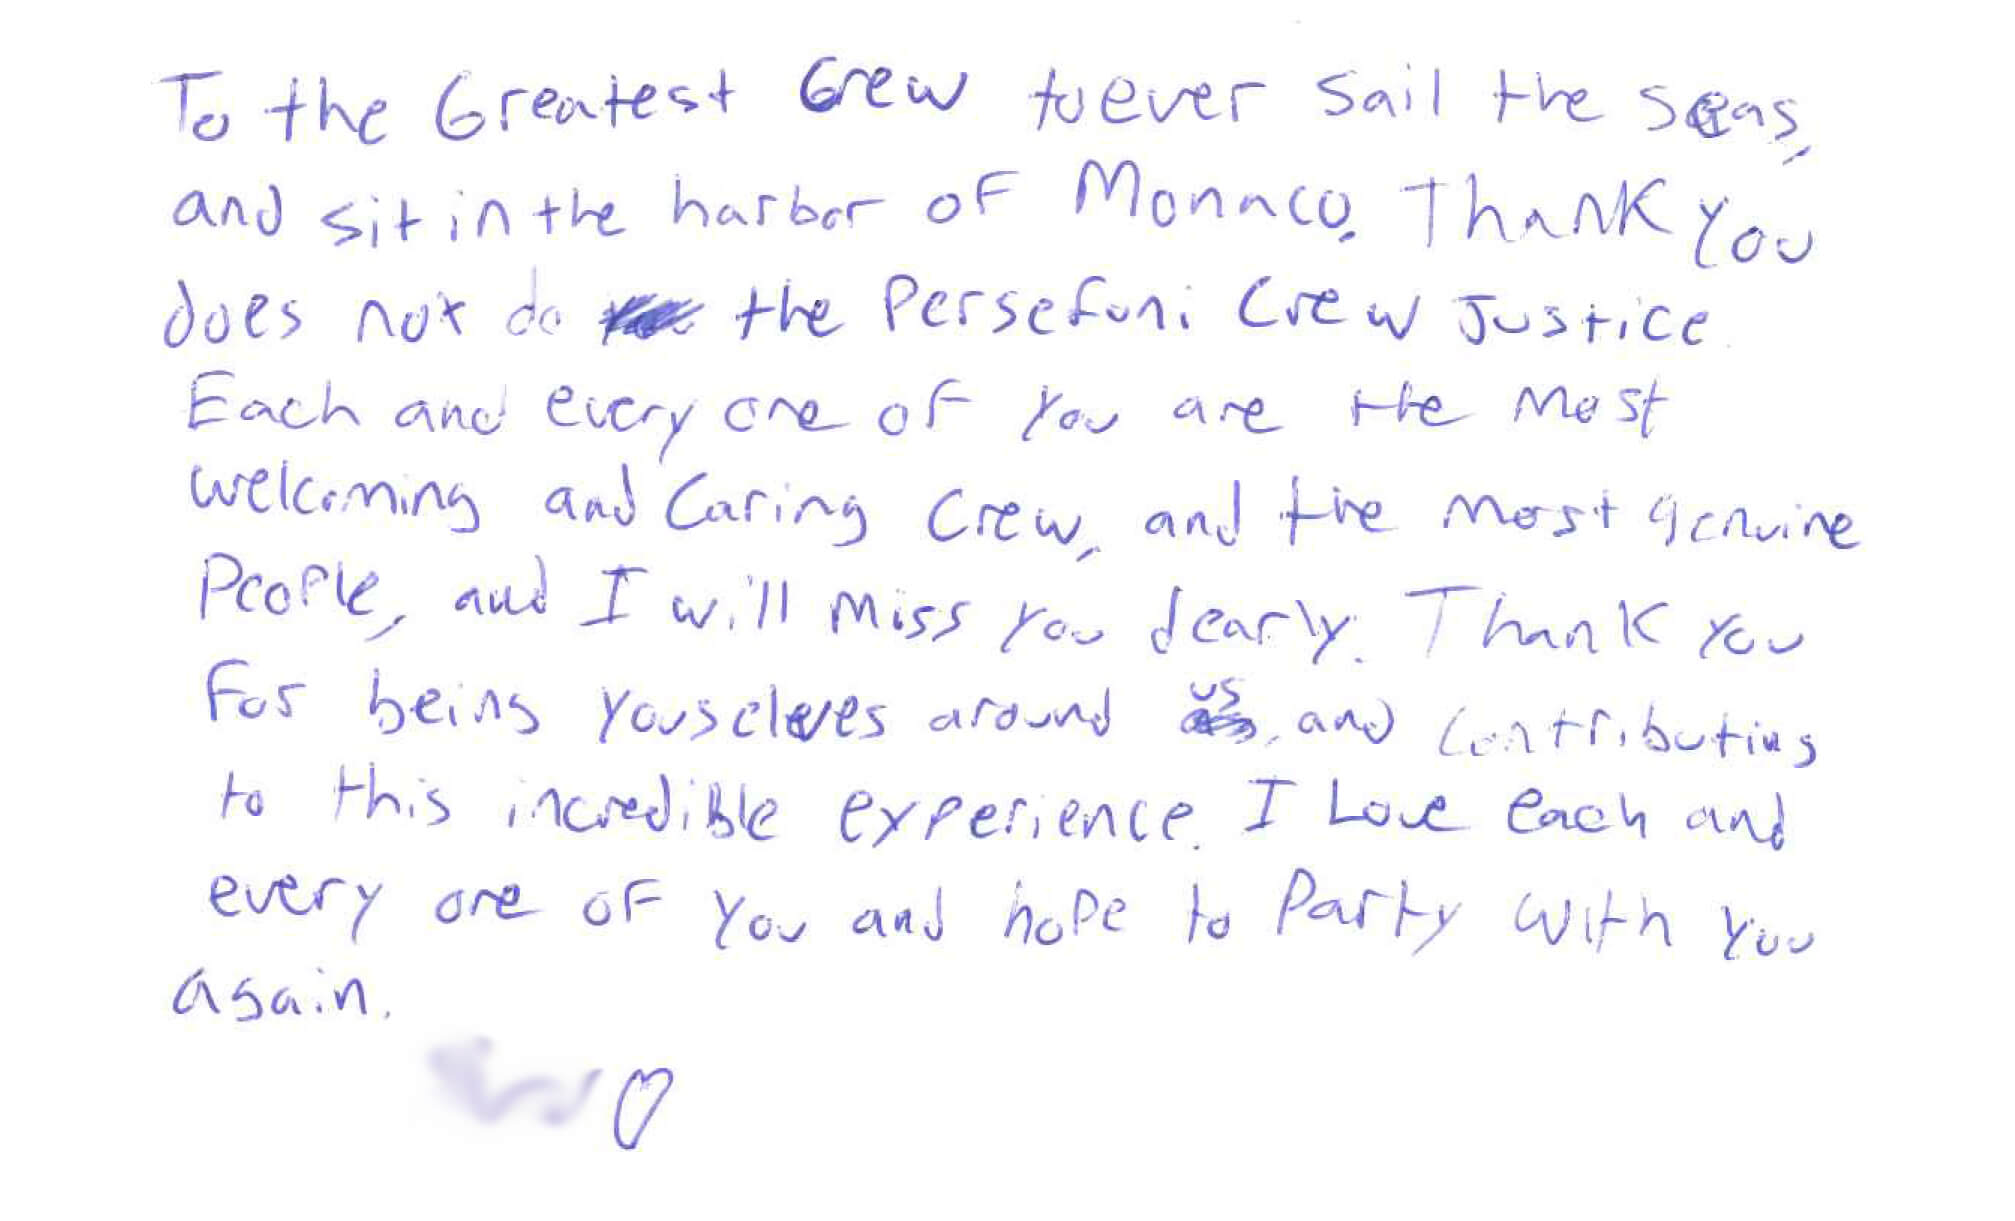 To the Greatest Crew to ever sail the seas,
and sit in the harbor of Monaco. Thank you
does not do the Persefoni Crew Justice.
Each and every one of you are the most
welcoming and Caring Crew, and the most genuine
People, and I will miss you dearly. Thank you
For being youselves around us, and contributing
to this incredible experience. I Love each and
every one of you and hope to Party with you
again.